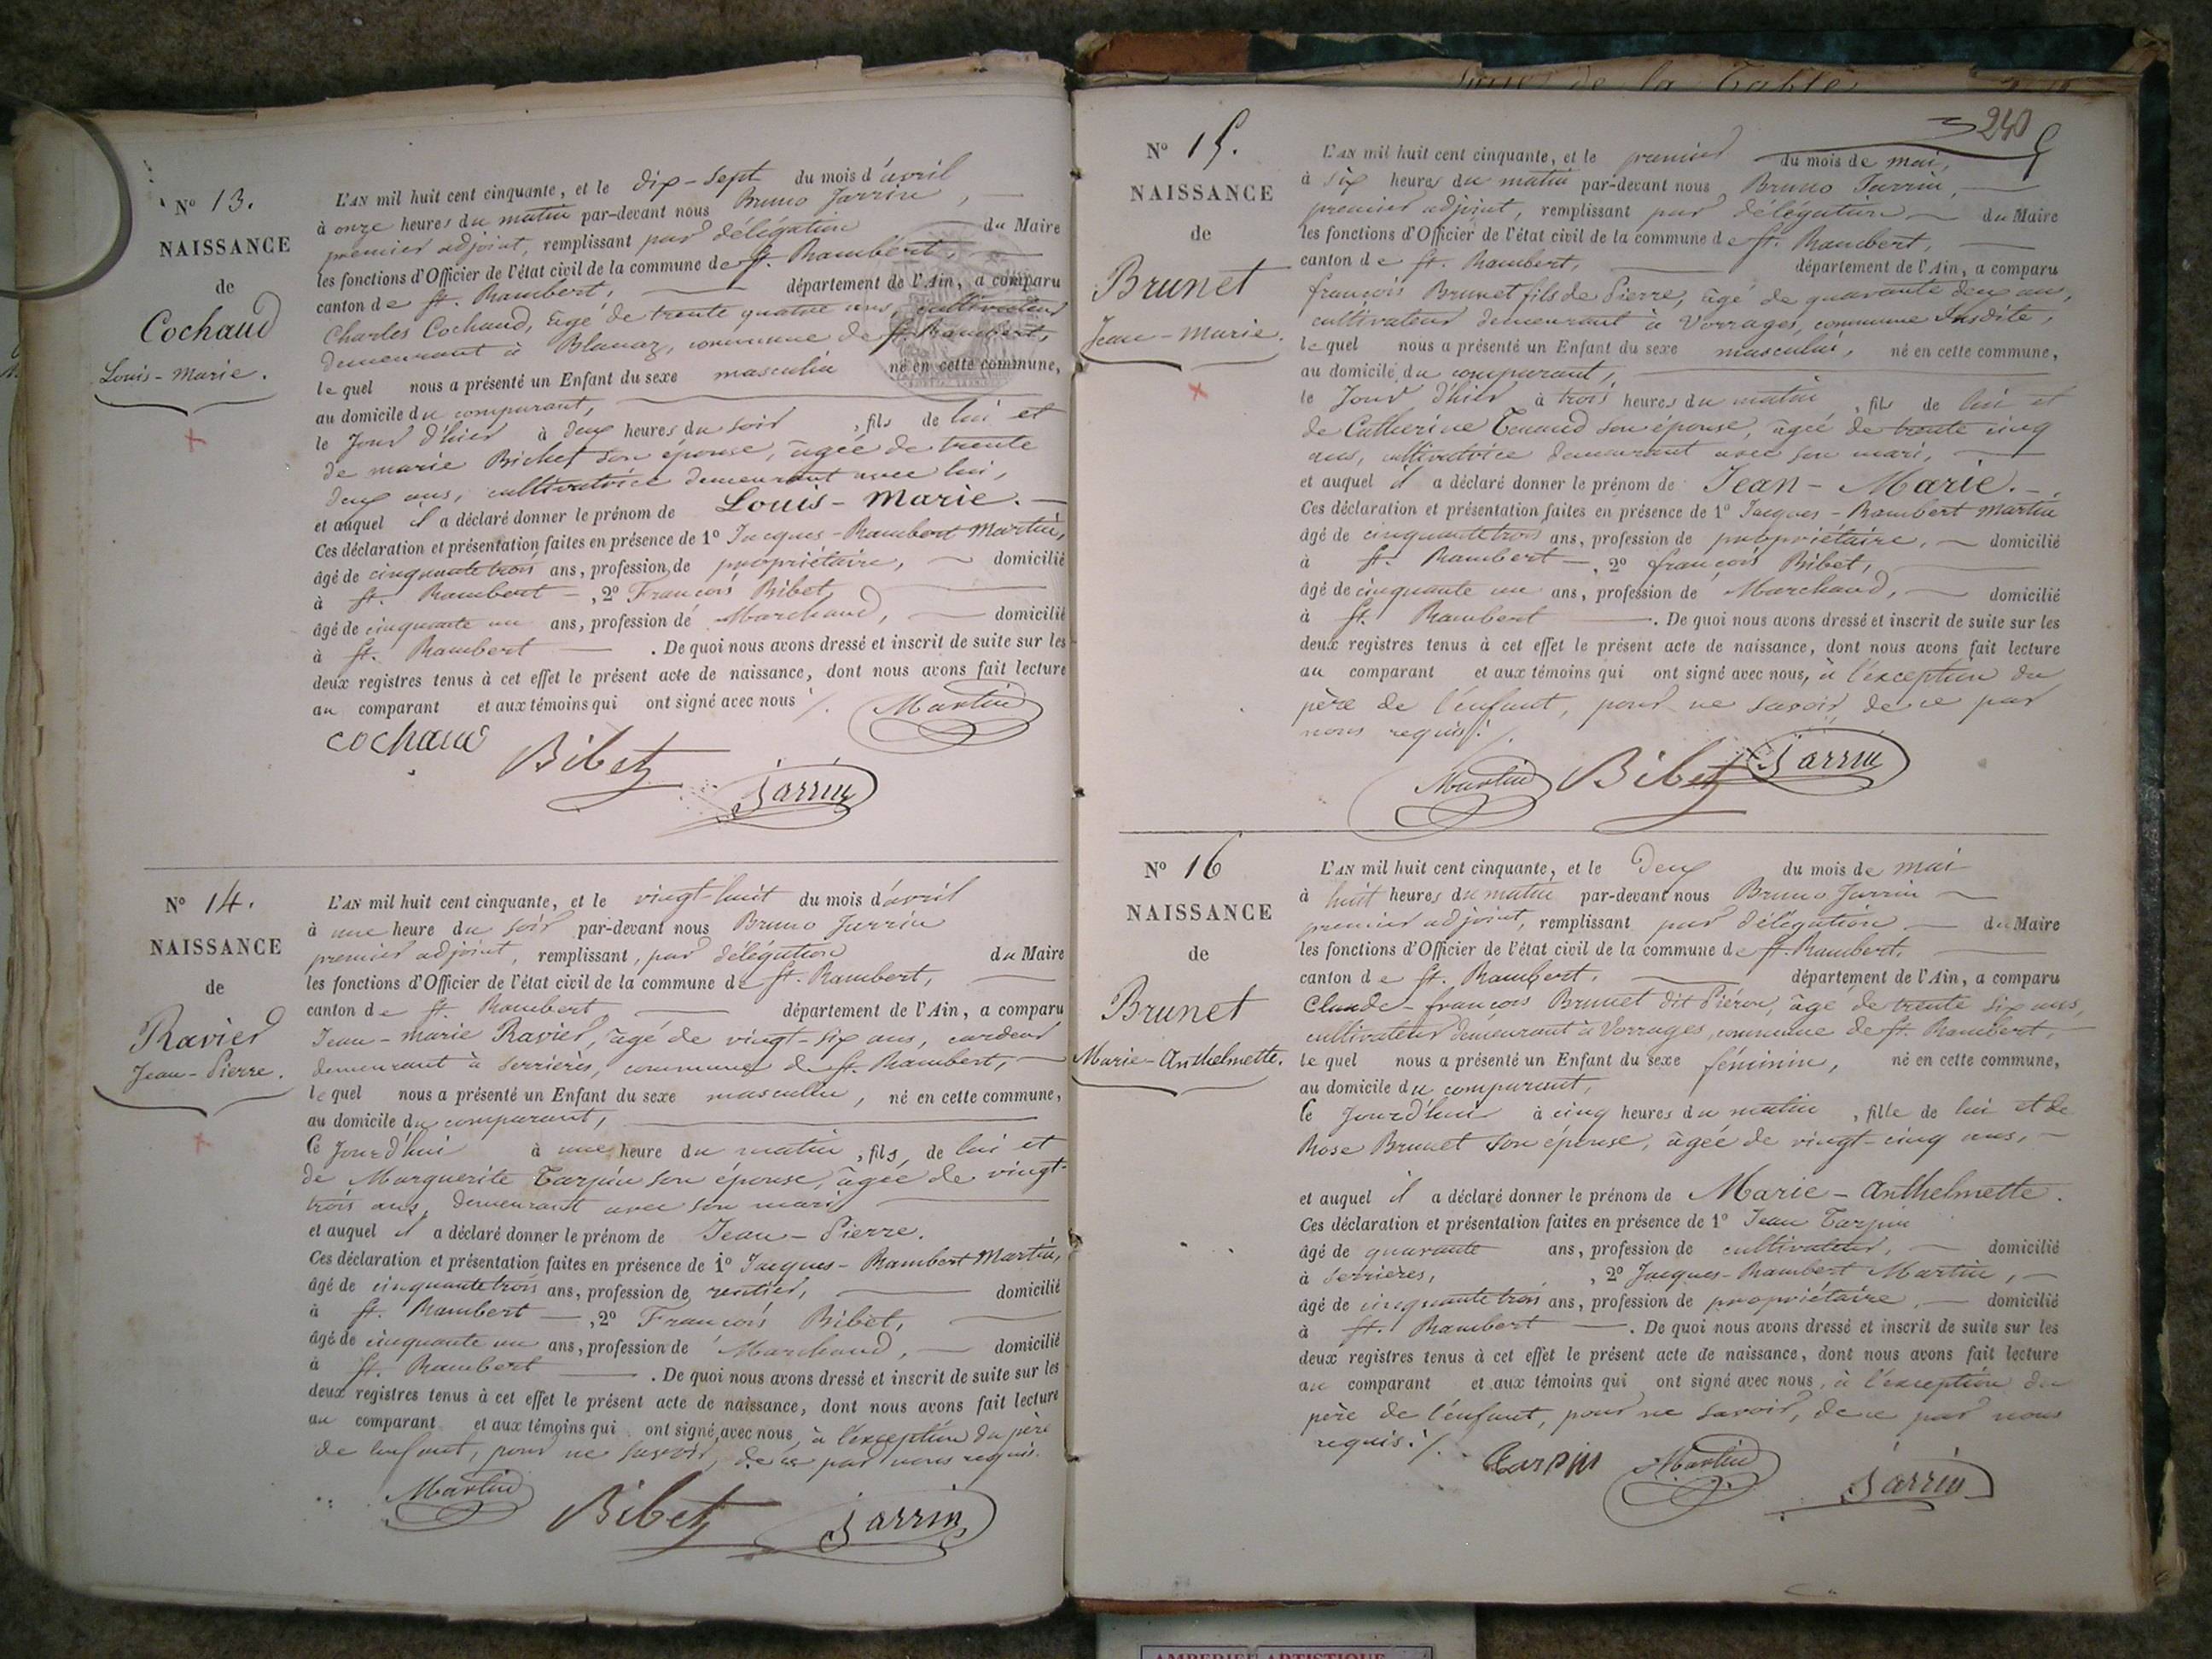 Nº 13.
NAISSANCE
de
Cochaud
Louis-Marie.
L'AN mil huit cent cinquante, et le dix-sept du mois d'avril
à onze heures du matin par-devant nous Bruno Jarrin,
premier adjoint, remplissant par délégation du Maire
les fonctions d'Officier de l'état civil de la commune de St. Rambert,
canton de St. Rambert, département de l'Ain, a comparu
Charles Cochaud, âgé de trente quatre ans, cultivateur
demeurant à Blanaz, commune de St. Rambert,
lequel nous a présenté un Enfant du sexe masculin né en cette commune,
au domicile du comparant,
le Jour d'hier à deux heures du soir, fils de lui et
de marie Bichet son épouse, âgée de trente
deux ans, cultivatrice demeurant avec lui,
et auquel il a déclaré donner le prénom de Louis-Marie.
Ces déclaration et présentation faites en présence de 1º Jacques-Rambert Martin,
âgé de cinquante trois ans, profession de propriétaire, domicilié
à St. Rambert, 2º François Bibet,
âgé de cinquante un ans, profession de Marchand, domicilié
à St. Rambert. De quoi nous avons dressé et inscrit de suite sur les
deux registres tenus à cet effet le présent acte de naissance, dont nous avons fait lecture
au comparant et aux témoins qui ont signé avec nous
Martin
cochaud
Bibet
Jarrin
Nº 14.
NAISSANCE
de
Ravier
Jean-Pierre.
L'AN mil huit cent cinquante, et le vingt-huit du mois d'avril
à une heure du soir par-devant nous Bruno Jarrin
premier adjoint, remplissant, par délégation du Maire
les fonctions d'Officier de l'état civil de la commune de St. Rambert,
canton de St. Rambert département de l'Ain, a comparu
Jean-marie Ravier, âgé de vingt-six ans, cardeur
demeurant à serrières, commune de St. Rambert,
lequel nous a présenté un Enfant du sexe masculin, né en cette commune,
au domicile du comparant,
Ce Jourd'hui à une heure du matin, fils de lui et
de Marguerite Tarpin son épouse, âgée de vingt-
trois ans, demeurant avec son mari
et auquel il a déclaré donner le prénom de Jean-Pierre.
Ces déclaration et présentation faites en présence de 1º Jacques-Rambert Martin,
âgé de cinquante trois ans, profession de rentier, domicilié
à St. Rambert, 2º François Bibet,
âgé de cinquante un ans, profession de Marchand, domicilié
à St. Rambert. De quoi nous avons dressé et inscrit de suite sur les
deux registres tenus à cet effet le présent acte de naissance, dont nous avons fait lecture
au comparant et aux témoins qui ont signé avec nous, à l'exception du père
de l'enfant, pour ne savoir, de ce par nous requis.
Martin
Bibet
Jarrin
240
Nº 15.
NAISSANCE
de
Brunet
Jean-Marie.
L'AN mil huit cent cinquante, et le premier du mois de mai,
à six heures du matin par-devant nous Bruno Jarrin,
premier adjoint, remplissant par délégation du Maire
les fonctions d'Officier de l'état civil de la commune de St. Rambert,
canton de St. Rambert, département de l'Ain, a comparu
françois Brunet fils de Pierre, âgé de quarante deux ans,
cultivateur demeurant à Vorrages, commune susdite,
lequel nous a présenté un Enfant du sexe masculin, né en cette commune,
au domicile du comparant,
le Jour d'hier à trois heures du matin, fils de lui et
de Catherine Tenand son épouse, âgée de trente cinq
ans, cultivatrice demeurant avec son mari,
et auquel il a déclaré donner le prénom de Jean-Marie.
Ces déclaration et présentation faites en présence de 1º Jacques-Rambert Martin
âgé de cinquante trois ans, profession de propriétaire, domicilié
à St. Rambert, 2º françois Bibet,
âgé de cinquante un ans, profession de Marchand, domicilié
à St. Rambert. De quoi nous avons dressé et inscrit de suite sur les
deux registres tenus à cet effet le présent acte de naissance, dont nous avons fait lecture
au comparant et aux témoins qui ont signé avec nous, à l'exception du
père de l'enfant, pour ne savoir, de ce par
nous requis.
Martin
Bibet
Jarrin
Nº 16
NAISSANCE
de
Brunet
Marie-Anthelmette.
L'AN mil huit cent cinquante, et le Deux du mois de mai
à huit heures du matin par-devant nous Bruno Jarrin
premier adjoint, remplissant par délégation du Maire
les fonctions d'Officier de l'état civil de la commune de St. Rambert,
canton de St. Rambert, département de l'Ain, a comparu
Claude-françois Brunet dit Piéron, âgé de trente six ans,
cultivateur demeurant à Vorrages, commune de St. Rambert,
lequel nous a présenté un Enfant du sexe féminin, né en cette commune,
au domicile du comparant,
Ce Jourd'hui à cinq heures du matin, fille de lui et de
Rose Brunet son épouse, âgée de vingt-cinq ans,
et auquel il a déclaré donner le prénom de Marie-Anthelmette.
Ces déclaration et présentation faites en présence de 1º Jean Tarpin
âgé de quarante ans, profession de cultivateur, domicilié
à serrières, 2º Jacques-Rambert Martin,
âgé de cinquante trois ans, profession de propriétaire, domicilié
à St. Rambert. De quoi nous avons dressé et inscrit de suite sur les
deux registres tenus à cet effet le présent acte de naissance, dont nous avons fait lecture
au comparant et aux témoins qui ont signé avec nous, à l'exception du
père de l'enfant, pour ne savoir, de ce par nous
requis.
Tarpin
Martin
Jarrin
AMBERIEU ARTISTIQUE